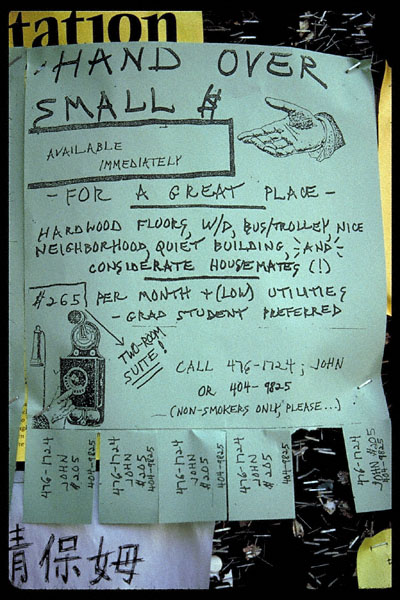 tation
HAND OVER
SMALL $
AVAILABLE
IMMEDIATELY
- FOR A GREAT PLACE -
HARDWOOD FLOORS, W/D, BUS/TROLLEY, NICE
NEIGHBORHOOD, QUIET BUILDING, -AND-
CONSIDERATE HOUSEMATES (!)
$265 PER MONTH + (LOW) UTILITIES
- GRAD STUDENT PREFERRED
TWO-ROOM
SUITE!
CALL 476-1724; JOHN
OR 404-9825
(NON-SMOKERS ONLY, PLEASE...)
476-1724
JOHN
$205
404-9825
476-1724
JOHN
$205
404-9825
476-1724
JOHN
$205
404-9825
476-1724
JOHN
$205
404-9825
476-1724
JOHN $205
404-9825
請保姆